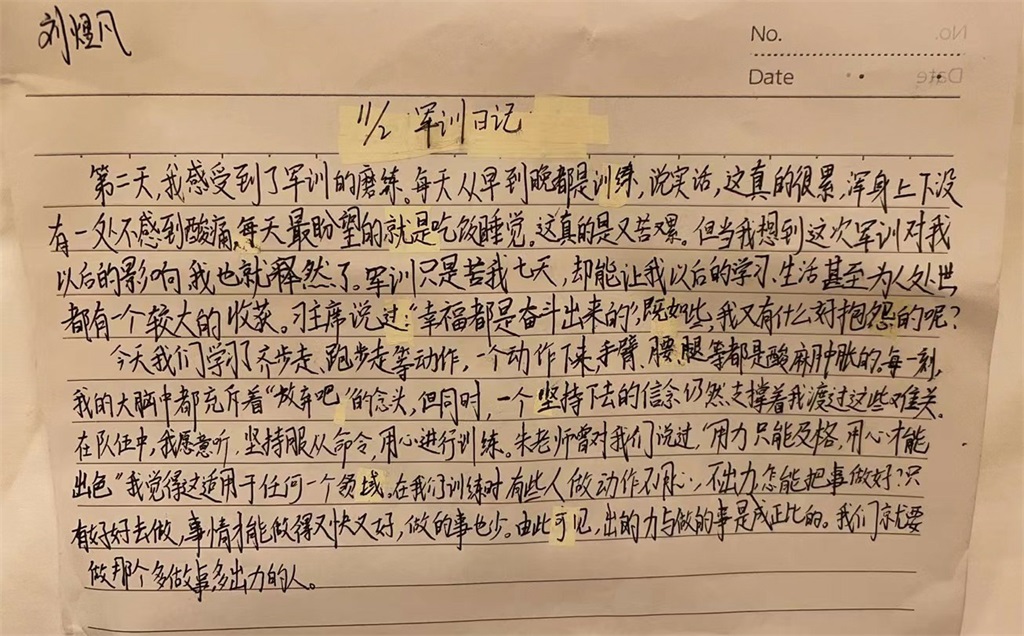 刘煜凡
No.
Date
11/2 军训日记
第二天,我感受到了军训的磨练。每天从早到晚都是训练,说实话,这真的很累,浑身上下没
有一处不感到酸痛。每天最盼望的就是吃饭睡觉。这真的是又苦又累。但当我想到这次军训对我
以后的影响,我也就释然了。军训只是苦我七天,却能让我以后的学习、生活甚至为人处世
都有一个较大的收获。习主席说过:“幸福都是奋斗出来的”,既如些,我又有什么好抱怨的呢?
今天我们学习了齐步走、跑步走等动作,一个动作下来,手臂、腰、腿等都是酸麻肿胀的。每一刻,
我的大脑中都充斥着“放弃吧”的念头,但同时,一个坚持下去的信念仍然支撑着我渡过这些难关。
在队伍中,我愿意听,坚持服从命令,用心进行训练。朱老师曾对我们说过,“用力只能及格,用心才能
出色”我觉得这适用于任何一个领域。在我们训练时有些人做动作不用心,不出力,怎能把事做好?只
有好好去做,事情才能做得又快又好,做的事也少。由此可见,出的力与做的事是成正比的。我们就要
做那个多做事,多出力的人。